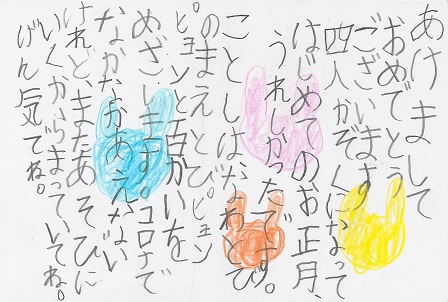 あけまして
おめでとう
ございます
四人かぞくになって
はじめてのお正月、
うれしかったです。
ことしはなわとび
のまえとびピョン
ピョンと百かいを
めざします。コロナで
なかなかあえない
けれど、またあそびに
いくからまっていてね。
げん気でね。